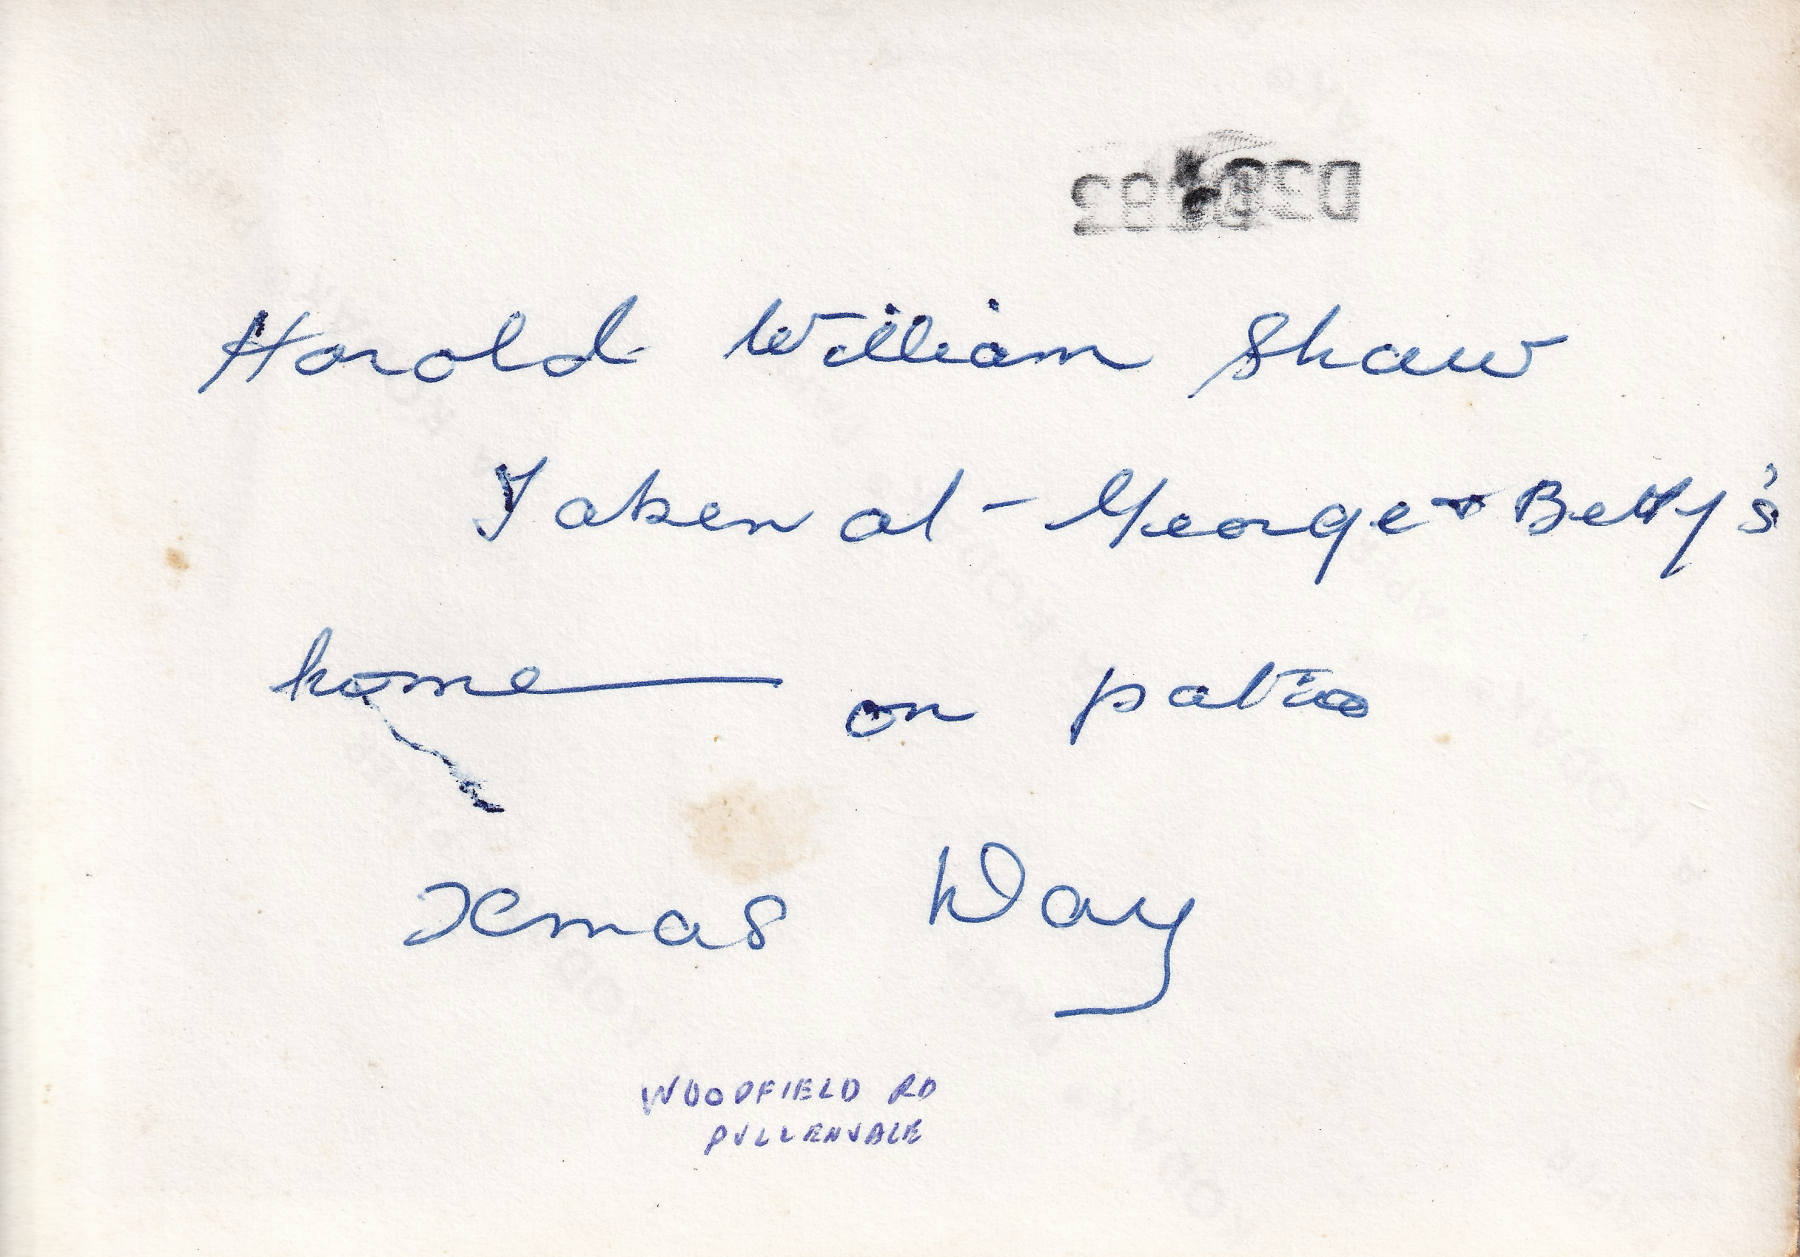 Harold William Shaw
Taken at - George + Betty's
home — on patio
Xmas Day
WOODFIELD RD
PULLENVALE